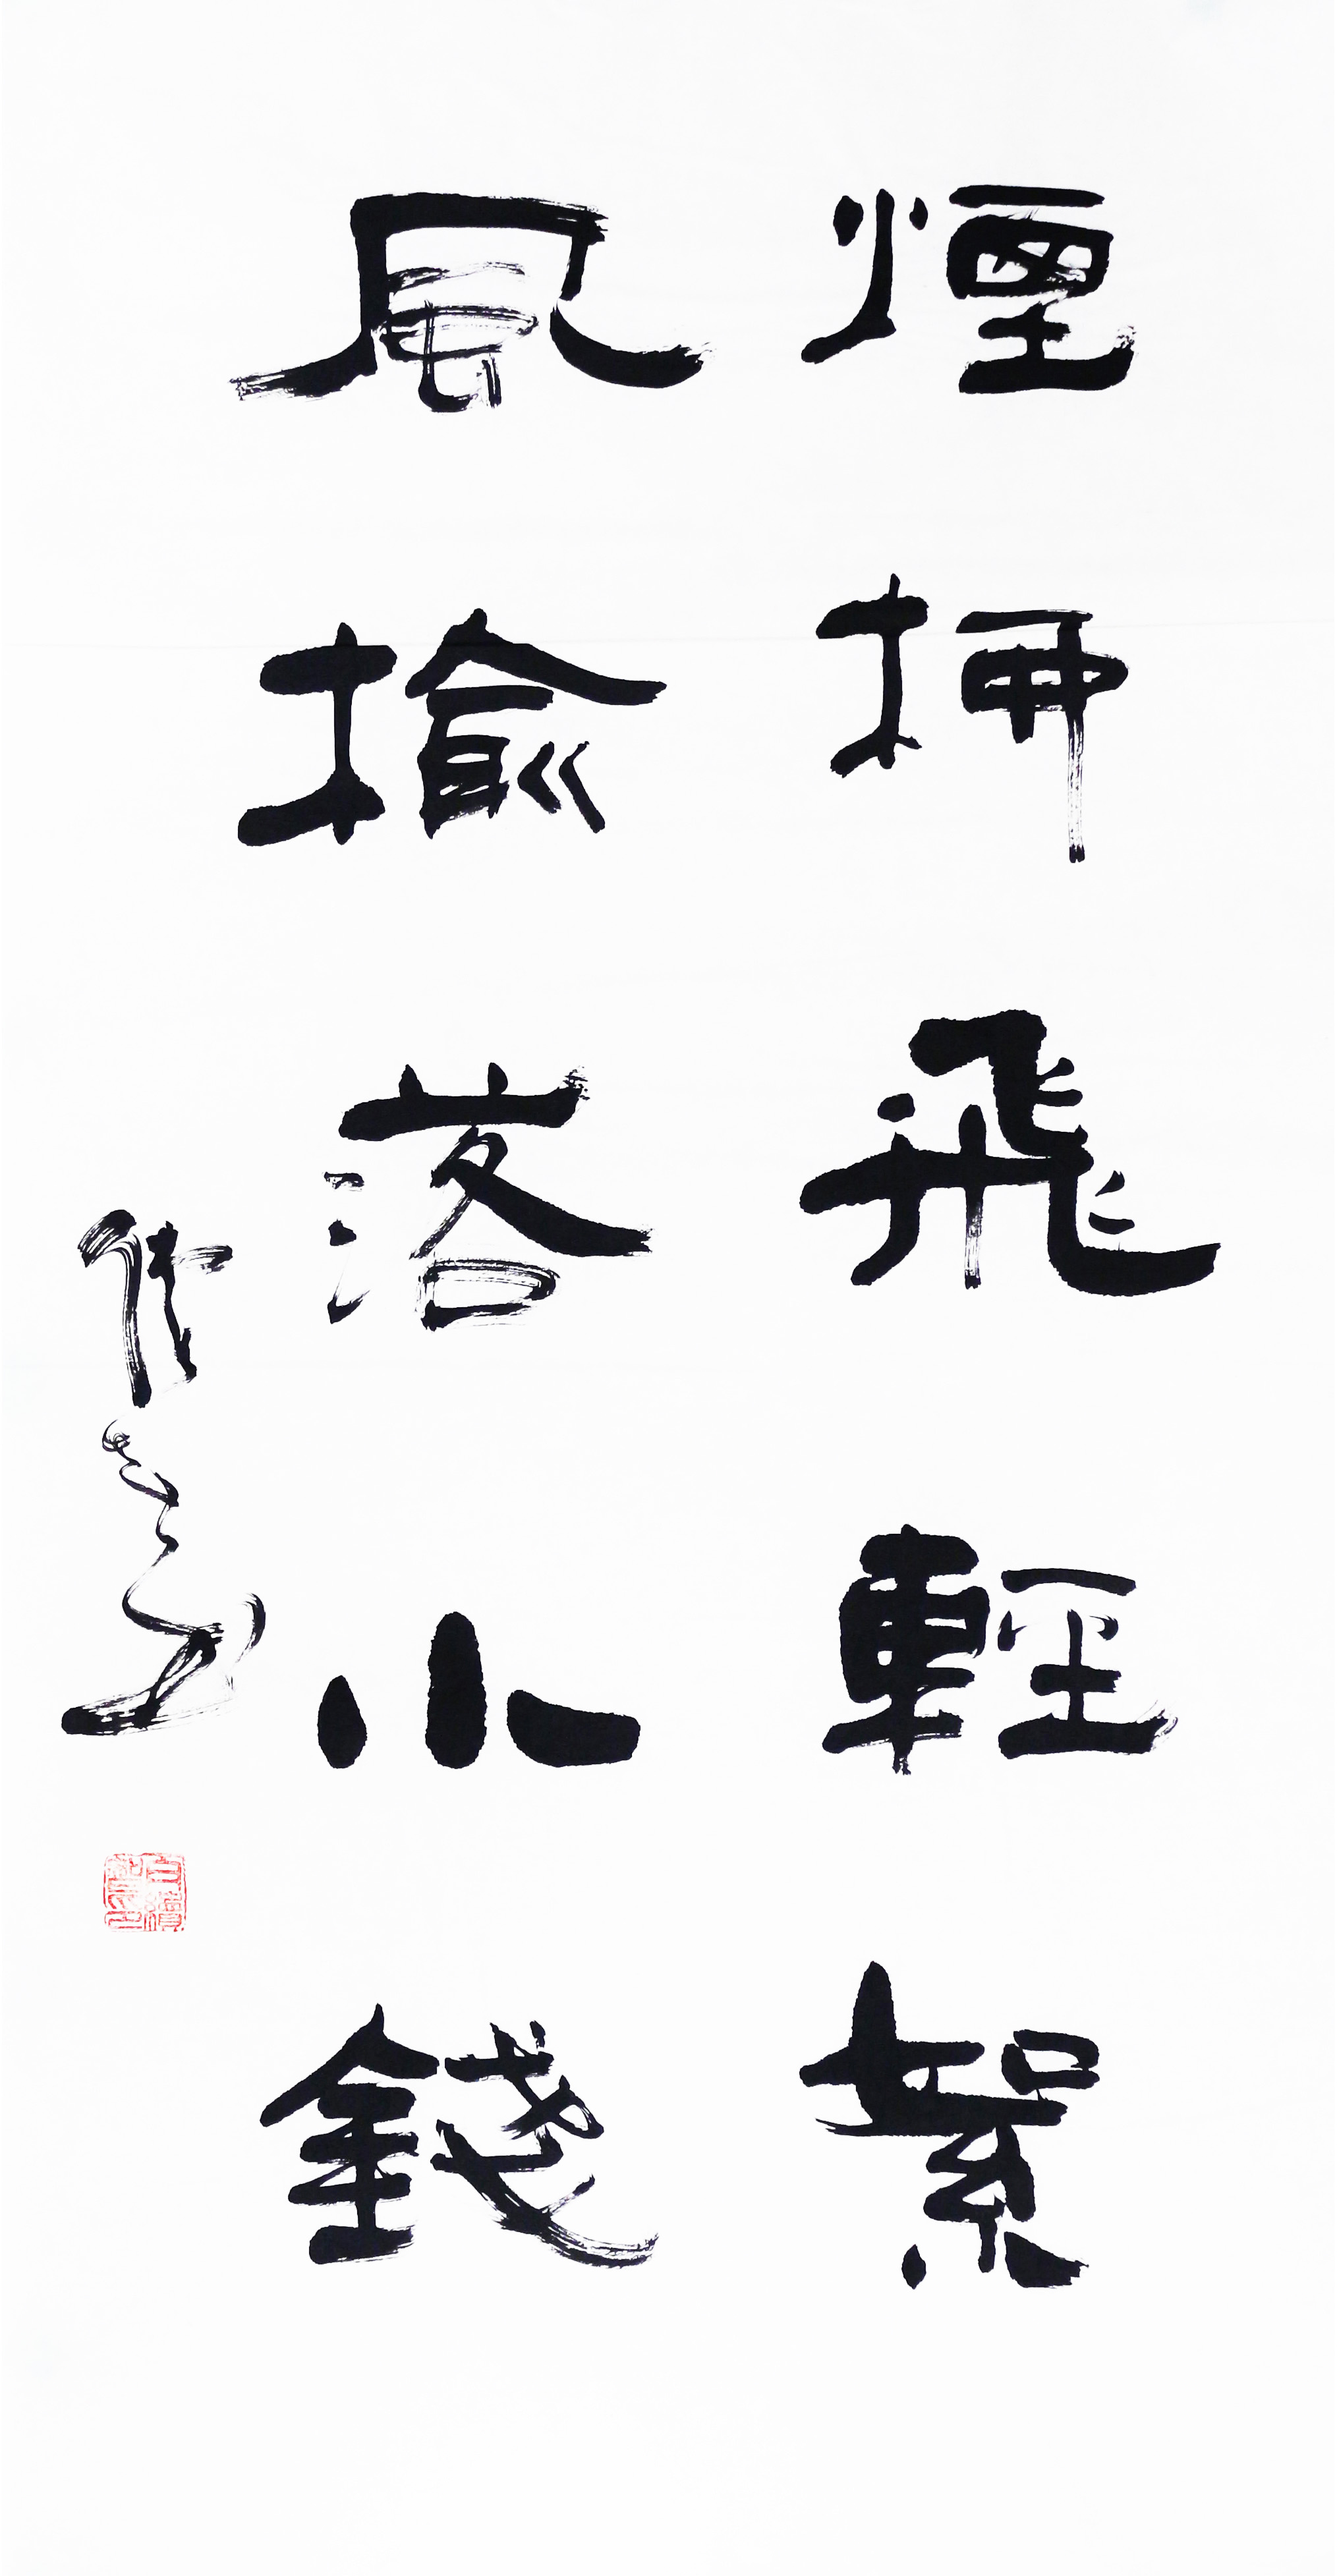 煙柳飛輕絮
風榆落小錢